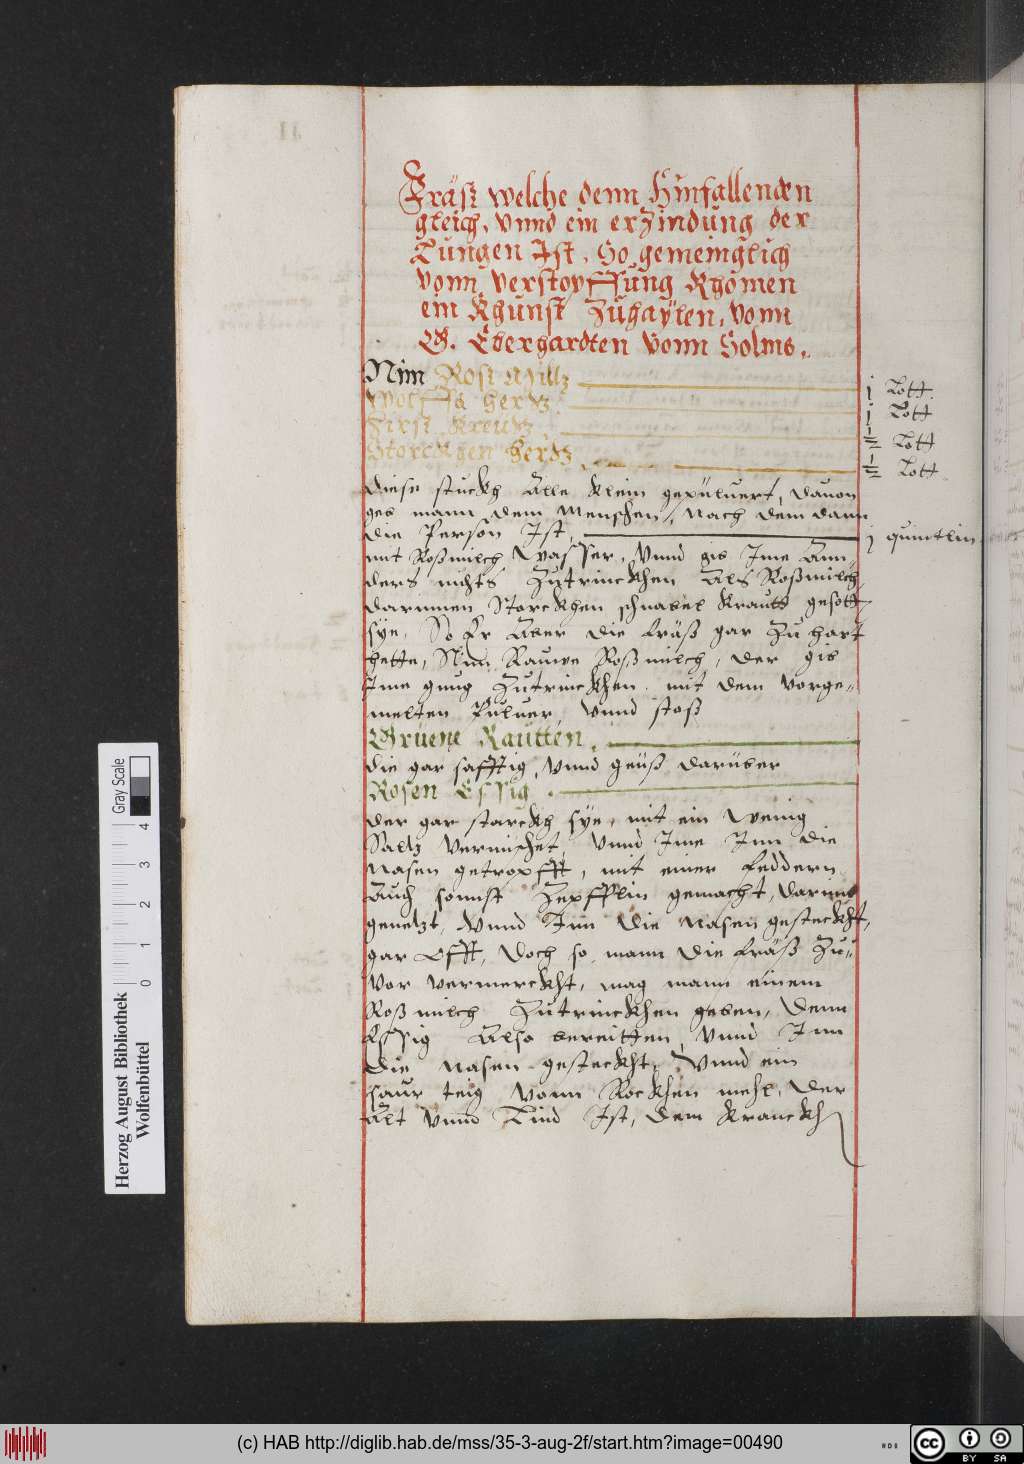 Fräsz welche denn Hinfallenden
gleich, vnnd ein erzindung der
Lungen Ist, So gemeinglich
vonn verstopffung Khomen
ein Khunst Zuhaylen, vonn
G. Eberhardten vonn Solms.
Nim Rosz Miltz j Lott.
Wolffs hertz j Lott
Hirsz Kreutz Lott
Storckhen hertz Lott
diese stuckh Alle klein gepüluert, dauon
geb mann dem Menschen, nach dem dann
die Person Ist, j quintlin.
mit Roßmilch Wasser, Vnnd gib Ime Ann
ders nichts Zutrinckhen Als Roßmilch,
darinnen Storckhen schnabel Krautt gesott
sye. So Er Aber die fräß gar Zu hart
hette, Nim Rauwe Roßmilch, der gib
Ime gnug Zutrinckhen mit dem vorge-
melten Puluer, Vnnd stoß
Gruene Rautten,
die gar safftig, Vnnd geüß darüber
Rosen Essig
der gar starckh sye, mit ein Wenig
Saltz vermischet, Vnnd Ime Inn die
Nasen getropfft, mit einer feddern
Auch sonnst Zepfflin gemacht, darinn
genetzt, Vnnd Inn die Nasen gesteckht,
gar Offt, Doch so mann die fräß Zu-
vor vermerckht, mag mann einem
Roßmilch Zutrinckhen geben, Denn
Essig Also bereitten, Vnnd Inn
die Nasen gesteckht, Vnnd ein
saur teig vonn Rockhen mehl, der
Alt vnnd Lind Ist, dem Kranckh
Gray Scale
0 1 2 3 4
Herzog August Bibliothek
Wolfenbüttel
(c) HAB http://diglib.hab.de/mss/35-3-aug-2f/start.htm?image=00490
cc BY SA